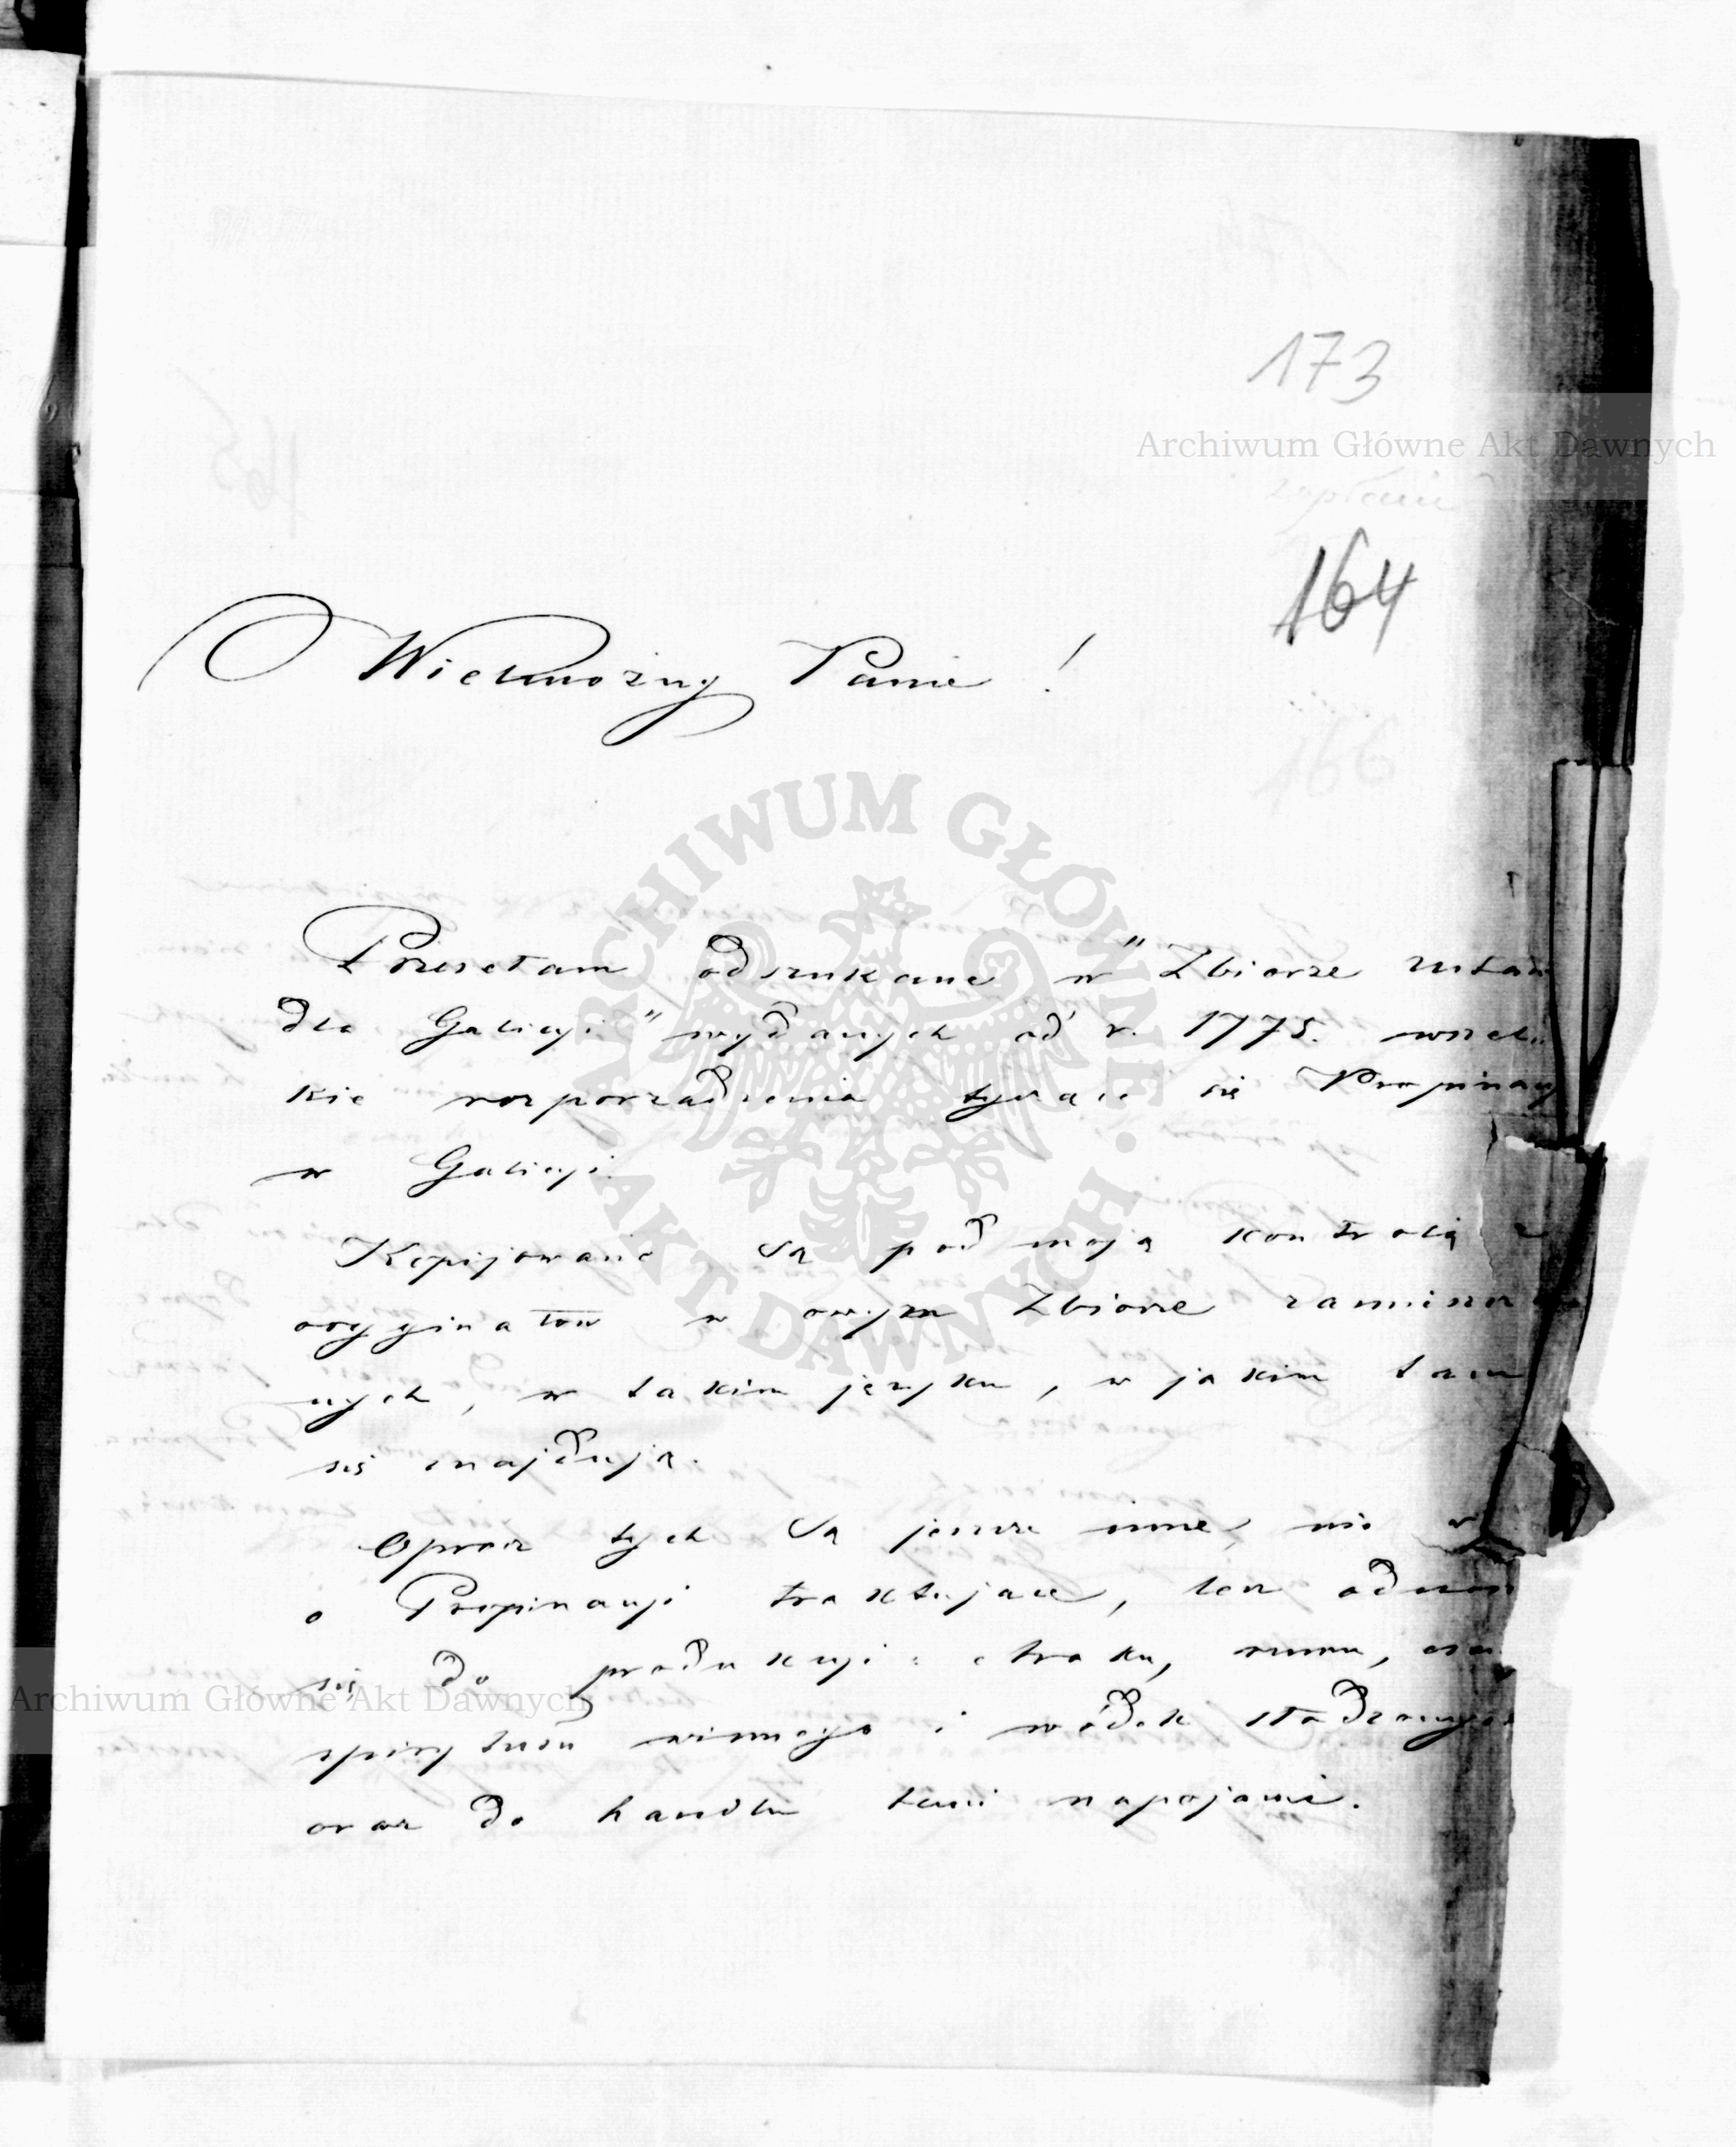 173
Archiwum Główne Akt Dawnych
zapłacić
164
Wielmożny Panie!
166
ARCHIWUM GŁÓWNE · AKT DAWNYCH ·
Przesełam odszukane w "Zbiorze ustaw
dla Galicyi" wydanych od r. 1775. wszel-
kie rozporządzenia tyczące się Propinacyi
w Galicyi.
Kopijowane są pod moją kontrolą z
oryginałów w owym Zbiorze zamieszczo
nych, w takim języku, w jakim tam
się znajdują.
Oprócz tych są jeszcze inne, nie
o Propinacyi traktujące, lecz odnosz
się do produkcyi: araku, rumu,
spirytusu winnego i wódek słodzonych
oraz do handlu temi napojami.
Archiwum Główne Akt Dawnych